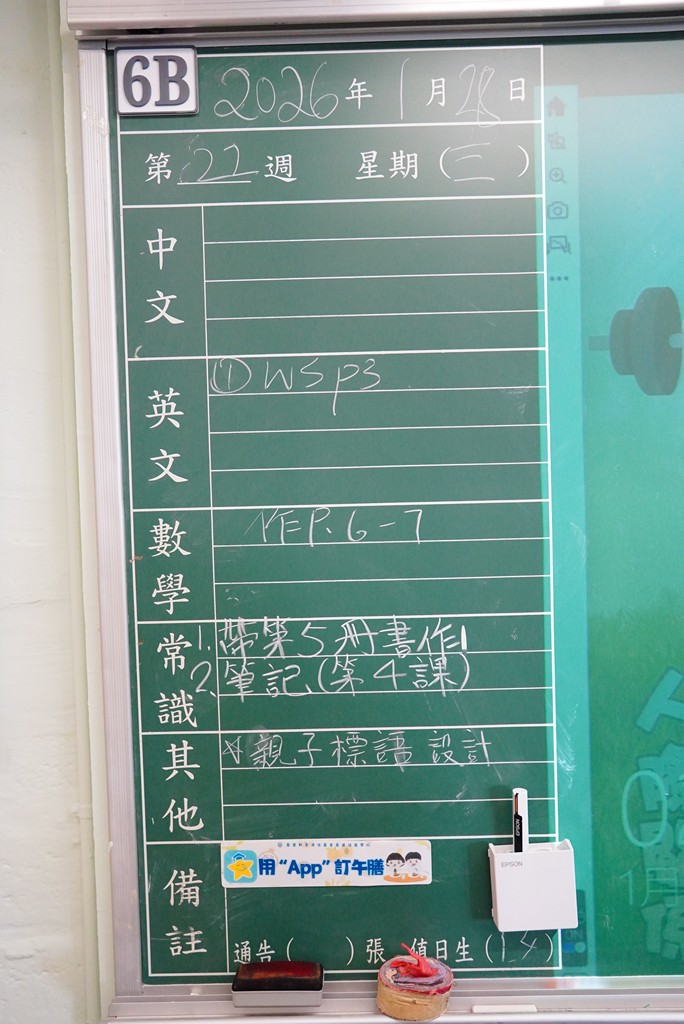 6B 2026年1月28日
第22週 星期(三)
中文
英文
① WS p3
數學
作 P. 6-7
常識
1. 帶第5冊書作
2. 筆記(第4課)
其他
☆親子標語設計
備註
用“App”訂午膳
EPSON
通告( )張 值日生(14)